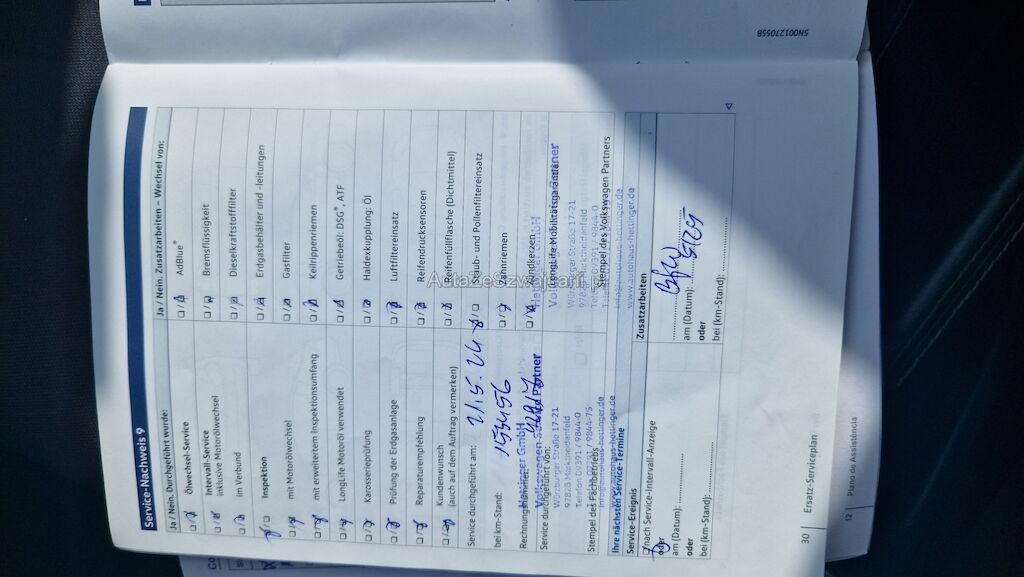 Service-Nachweis 9
Ja / Nein. Durchgeführt wurde:
Ölwechsel-Service
Intervall-Service
inklusive Motorölwechsel
im Verbund
Inspektion
mit Motorölwechsel
mit erweitertem Inspektionsumfang
LongLife Motoröl verwendet
Karosserieprüfung
Prüfung der Erdgasanlage
Reparaturempfehlung
Kundenwunsch
(auch auf dem Auftrag vermerken)
Service durchgeführt am:
bei km-Stand:
Rechnungsnummer:
Service durchgeführt von:
Hettinger GmbH
Volkswagen Service Partner
Würzburger Straße 17-21
97828 Marktheidenfeld
Telefon 09391 / 9844-0
Stempel des Fachbetriebs
Ja / Nein. Zusatzarbeiten – Wechsel von:
AdBlue®
Bremsflüssigkeit
Dieselkraftstofffilter
Erdgasbehälter und -leitungen
Gasfilter
Keilrippenriemen
Getriebeöl: DSG®, ATF
Haldexkupplung: Öl
Luftfiltereinsatz
Reifendrucksensoren
Reifenfüllflasche (Dichtmittel)
Staub- und Pollenfiltereinsatz
Zahnriemen
Zündkerzen
LongLife-Mobilitätsgarantie
Würzburger Straße 17-21
97828 Marktheidenfeld
Stempel des Volkswagen Partners
www.autohaus-hettinger.de
Ihre nächsten Service-Termine
Service-Ereignis
nach Service-Intervall-Anzeige
oder
am (Datum):
oder
bei (km-Stand):
Zusatzarbeiten
am (Datum):
oder
bei (km-Stand):
30
Ersatz-Serviceplan
12
Plano de Assistência
5N0012705SB